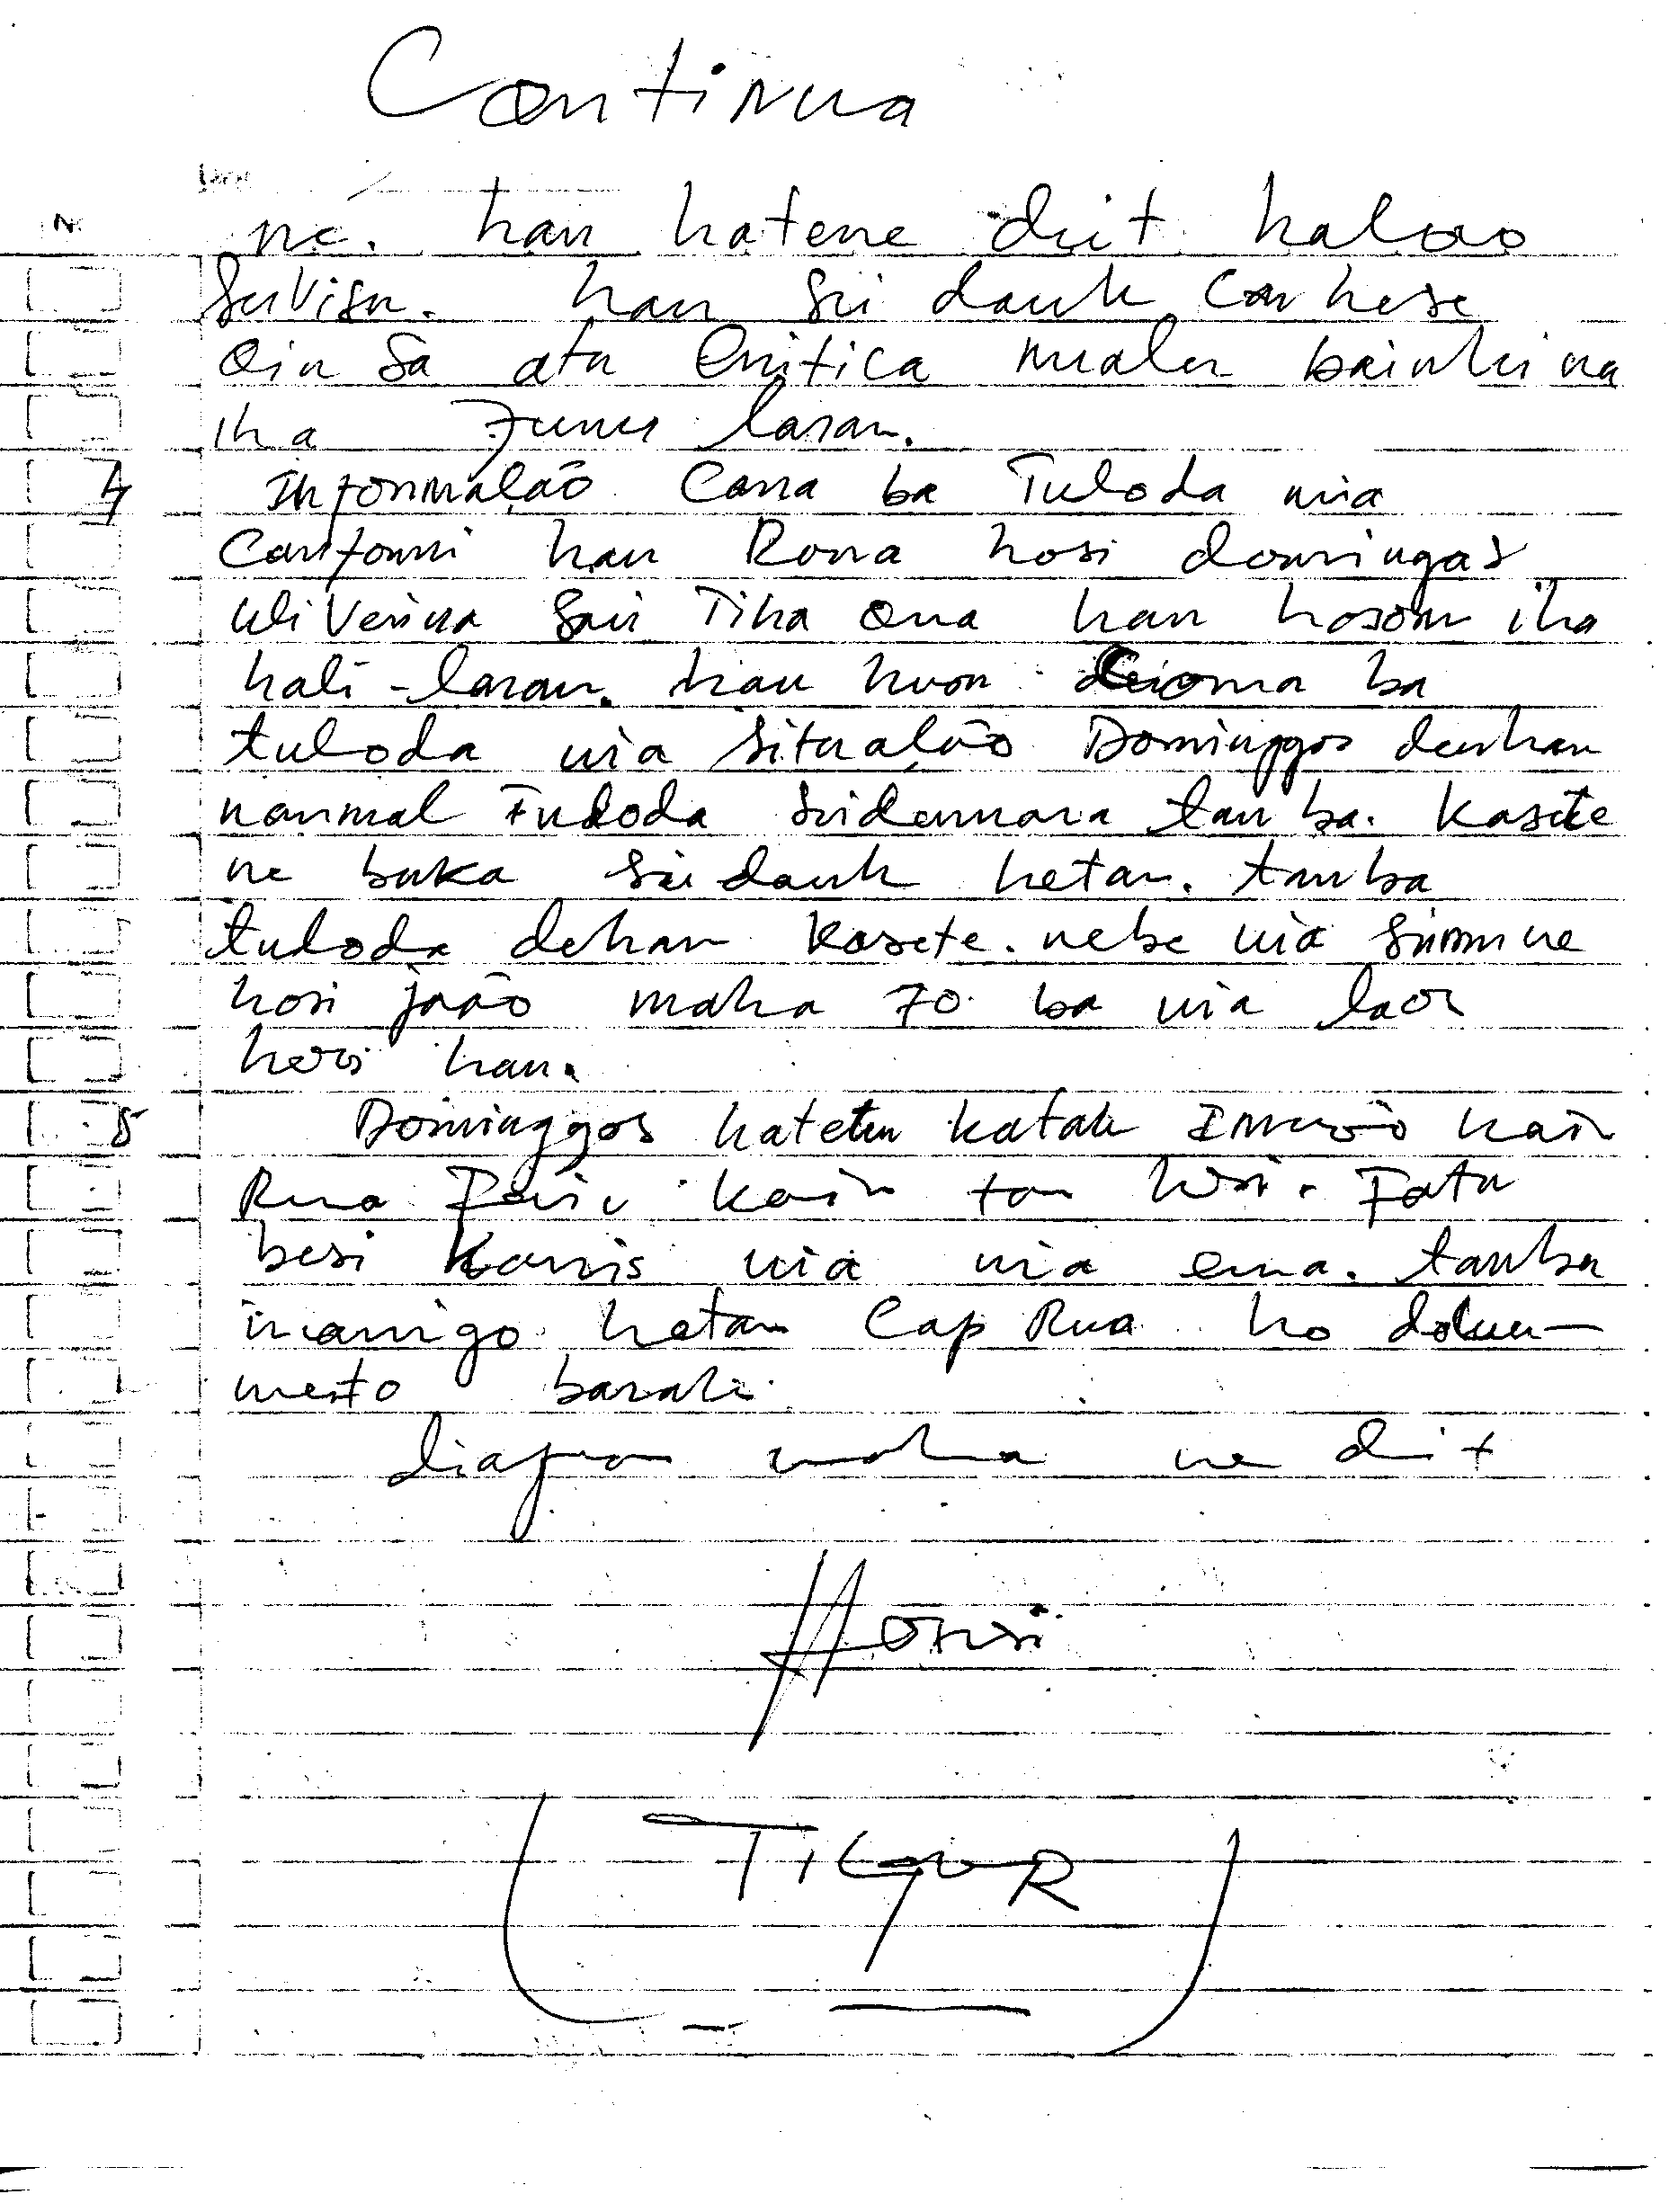 Continua
ne. hau hatene diit halao
Servisu. hau sei dauk conhese
oin sa atu Critica malu bainhira
iha Funu laran.
4 Informação Cona ba Tuloda nia
Confomi hau Rona hosi domingas
oliveira sai Tiha ona hau hosou iha
kali-laran. hau huso ba
tuloda nia situação Dominggos dehan
normal Tuloda tanba. kasete
ne buka sei dauk hetan. tanba
tuloda dehan kasete. nebe nia simu ne
hosi joão maha 70 ba nia laos
hosi hau.
5 Dominggos hatetu katak kair
Rua kair tan hosi. Fatu
besi nia nia ema. tanba
inamigo hetan Cap Rua ho doku-
mento barak.
diapou maka ne dit
Hosi
TIGOR